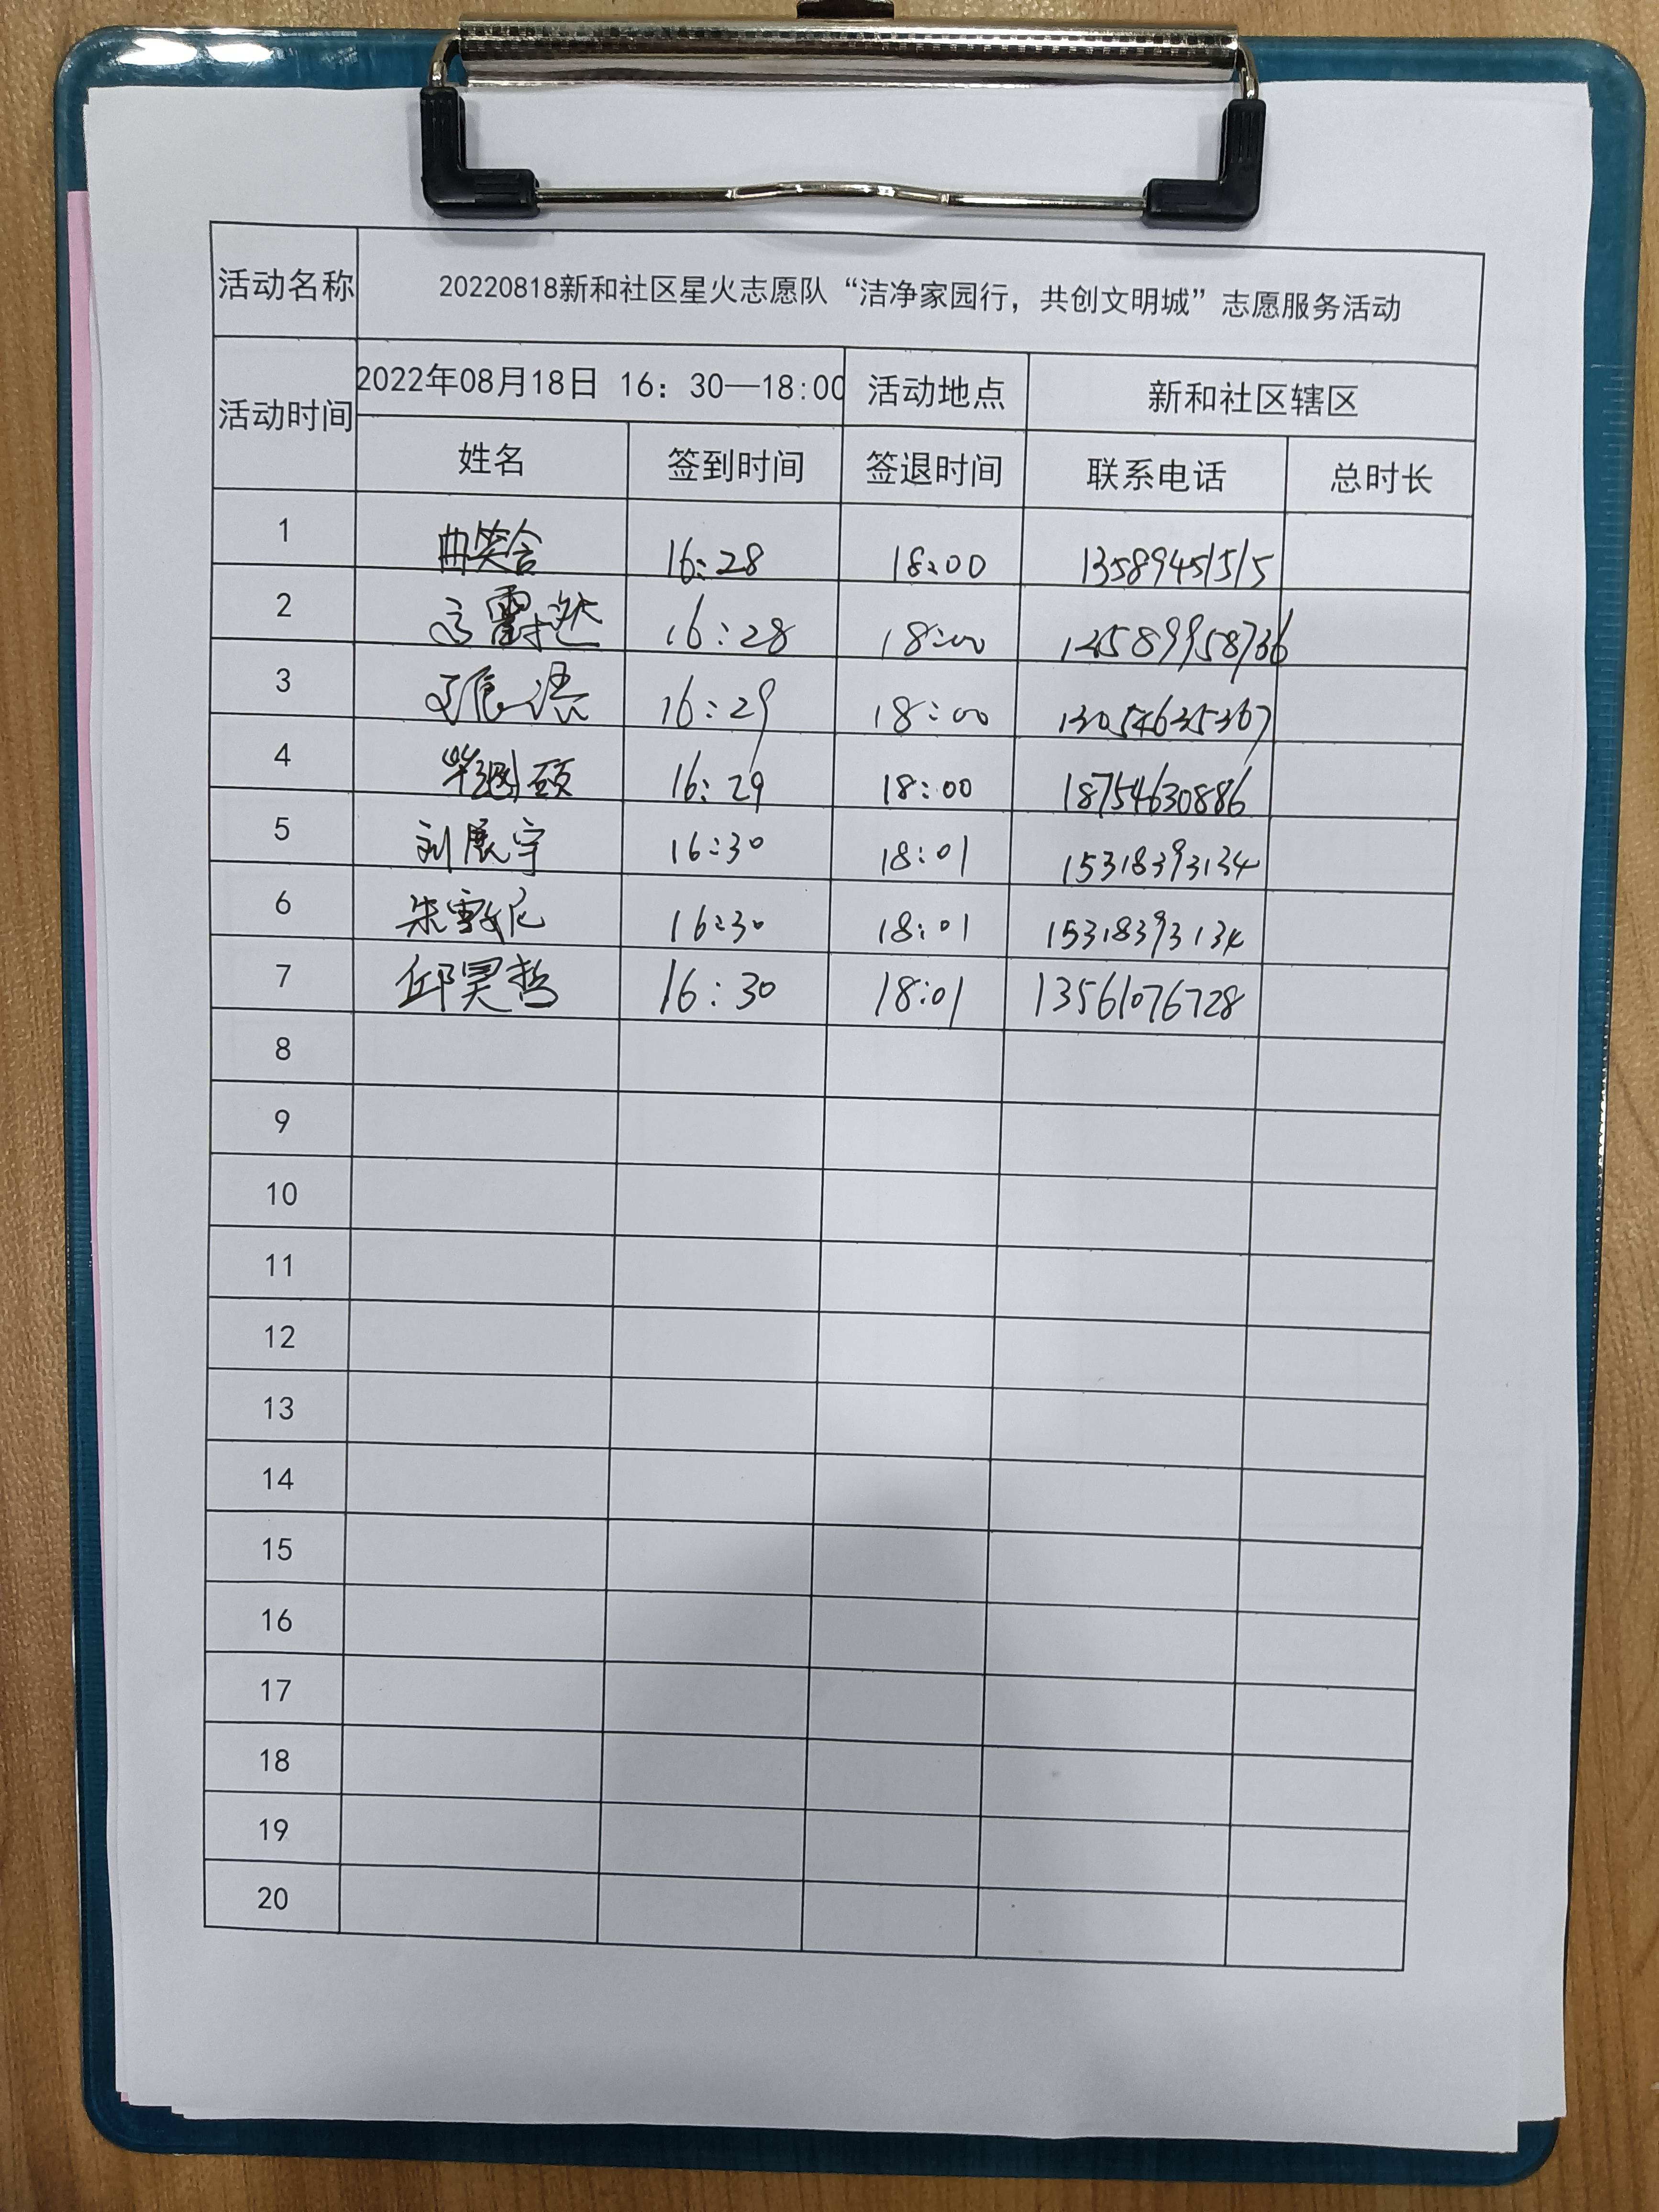 活动名称 20220818新和社区星火志愿队“洁净家园行，共创文明城”志愿服务活动
活动时间 2022年08月18日 16：30—18:00 活动地点 新和社区辖区
姓名 签到时间 签退时间 联系电话 总时长
1 曲笑含 16:28 18:00 13589451515
2 16:28 18:00
3 16:29 18:00 13054635367
4 16:29 18:00 18754630886
5 刘展宇 16:30 18:01 15318393134
6 朱雪妮 16:30 18:01 15318393134
7 邱昊哲 16:30 18:01 13561076728
8
9
10
11
12
13
14
15
16
17
18
19
20